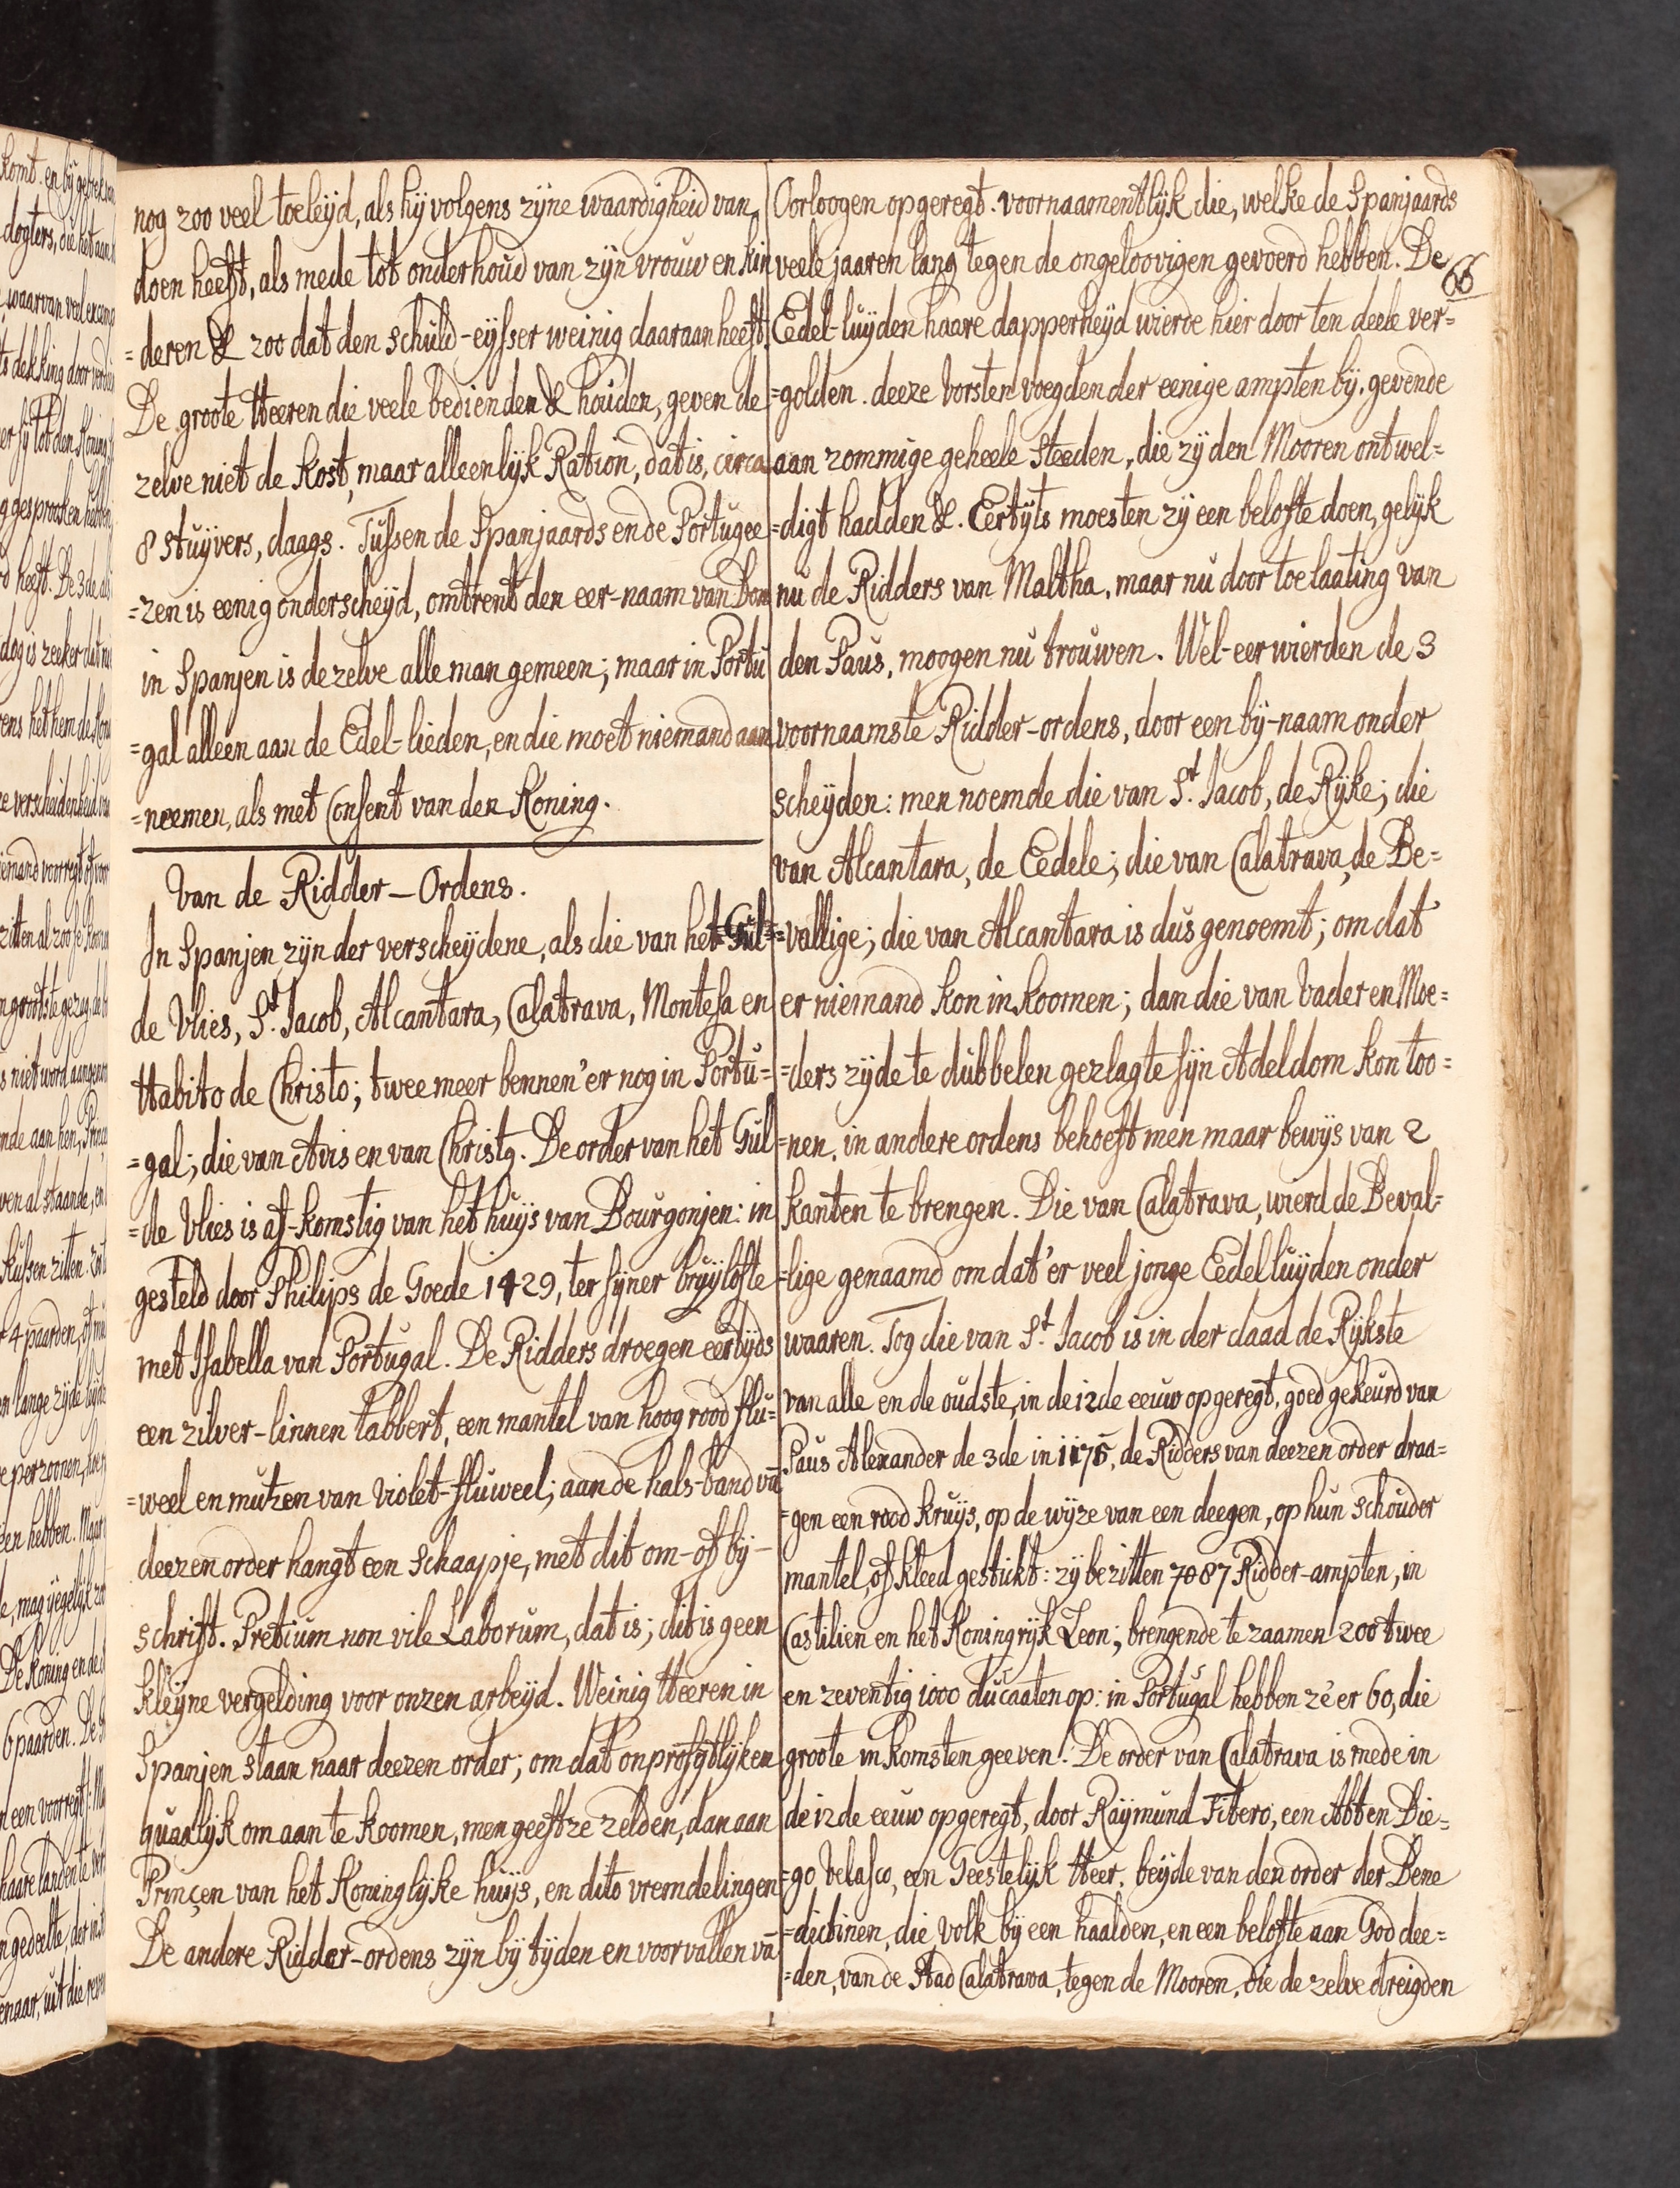 nog zoo veel toeleijd, als hij volgens zijne waardigheid van
doen heeft, als mede tot onderhoud van zijn vrouw en kin
=deren & zoo dat den schuld-eijsser weinig daaraan heeft.
De groote Heeren die veele bedienden & houden, geven de
zelve niet de kost, maar alleenlijk Ration, dat is, circa
8 stuijvers, daags. Tussen de Spanjaards en de Portugee
=zen is eenig onderscheijd, omtrent den eer-naam van Don
in Spanjen is de zelve alle man gemeen; maar in Portu
=gal alleen aan de Edel-lieden, en die moet niemand aan
=neemen, als met Consent van den Koning.
Van de Ridder-Ordens.
In Spanjen zijn der verscheijdene, als die van het Gul=
de Vlies, St. Jacob, Alcantara, Calatrava, Montesa en
Habito de Christo; twee meer bennen'er nog in Portu=
=gal; die van Avis en van Christg. De order van het Gul
=de Vlies is af-komstig van het huijs van Bourgonjen: in
gesteld door Philips de Goede 1429, ter sijner bruijlofte
met Isabella van Portugal. De Ridders droegen eertijds
een zilver-linnen tabbert, een mantel van hoog rood flu=
=weel en mutzen van violet-fluweel; aan de hals-band vā
deezen order hangt een schaapje, met dit om- of bij-
schrift. Pretium non vile Laborum, dat is; dit is geen
kleijne vergelding voor onzen arbeijd. Weinig Heeren in
Spanjen staan naar deezen order; om dat onprofijtlijken
qualijk om aan te koomen, men geeft ze zelden, dan aan
Prinçen van het Koninglijke huijs, en dito vremdelingen
De andere Ridder-ordens zijn bij tijden en voorvallen vā
Oorloogen opgeregt. voornaamentlijk die, welke de Spanjaards
veele jaaren lang tegen de ongeloovigen gevoerd hebben. De
66
Eedel-luijden haare dapperheijd wierde hier door ten deele ver=
=golden. deeze Vorsten voegden der eenige ampten bij, gevende
aan zommige geheele steeden, die zij den Mooren ontwel=
=digt hadden &. Eertijts moesten zij een belofte doen, gelijk
nu de Ridders van Maltha, maar nu door toelaating van
den Paus, moogen nu trouwen. Wel-eer wierden de 3
voornaamste Ridder-ordens, door een bij-naam onder
scheijden: men noemde die van St. Jacob, de Rijke; die
van Alcantara, de Eedele; die van Calatrava, de Be=
=vallige; die van Alcantara is dus genoemt; om dat
er niemand kon in koomen; dan die van Vader en Moe=
=ders zijde te dubbelen gezlagte sijn Adeldom kon too=
=nen, in andere ordens behoeft men maar bewijs van 2
kanten te brengen. Die van Calatrava, wierd de Beval=
=lige genaamd om dat'er veel jonge Eedelluijden onder
waaren. Tog die van St. Jacob is in der daad de Rijkste
van alle en de oudste, in de 12de eeuw opgeregt, goed gekeurd van
Paus Alexander de 3de in 1175, de Ridders van deezen order draa=
=gen een rood kruijs, op de wijze van een deegen, op hun schouder
mantel, of kleed gestikt: zij bezitten 7087 Ridder-ampten, in
Castilien en het Koningrijk Leon; brengende te zaamen 200 twee
en zeventig 1000 ducaaten op: in Portugal hebben ze er 60, die
groote inkomsten geeven. De order van Calatrava is mede in
de 12de eeuw opgeregt, door Raijmund Fitero, een Abt en Die=
=go Velasco, een Geestelijk Heer, beijde van den order der Bene
=dictinen, die volk bij een haalden, en een belofte aan God dee=
=den, van de Stad Calatrava, tegen de Mooren, die de zelve dreigden